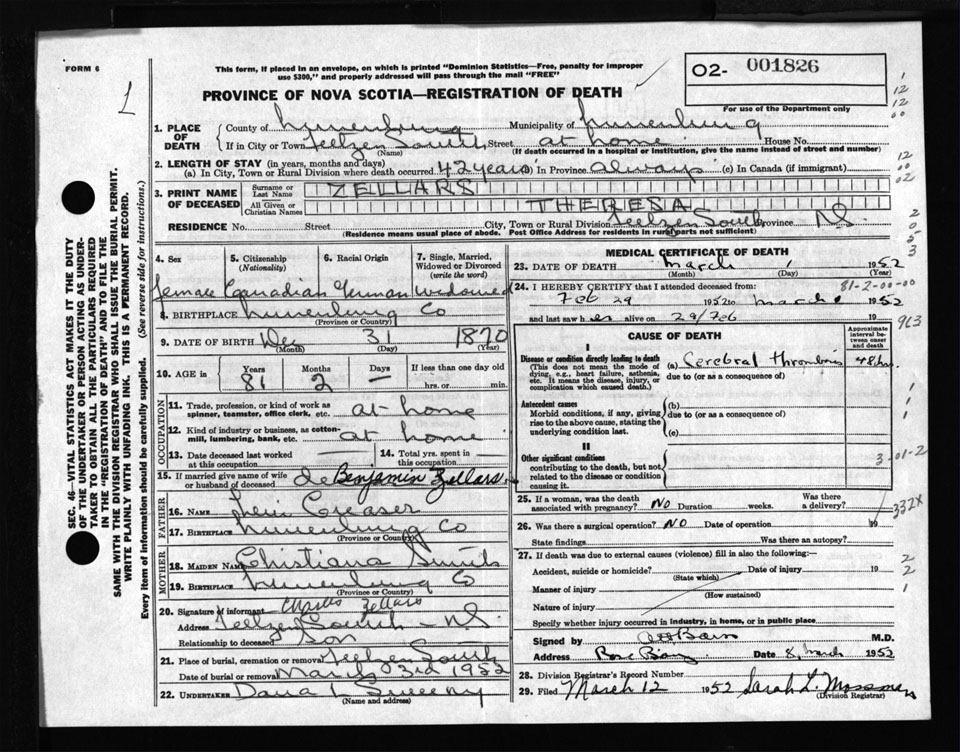 FORM 6
This form, if placed in an envelope, on which is printed "Dominion Statistics—Free, penalty for improper
use $300," and properly addressed will pass through the mail "FREE"
02- 001826
For use of the Department only
PROVINCE OF NOVA SCOTIA—REGISTRATION OF DEATH
1. PLACE OF DEATH
County of Lunenburg Municipality of Lunenburg
If in City or Town Feltzen South Street at home House No.
(Name) (If death occurred in a hospital or institution, give the name instead of street and number)
2. LENGTH OF STAY (in years, months and days)
(a) In City, Town or Rural Division where death occurred 42 years (b) In Province always (c) In Canada (if immigrant)
3. PRINT NAME OF DECEASED
Surname or Last Name ZELLARS
All Given or Christian Names THERESA
RESIDENCE No. Street City, Town or Rural Division Feltzen South Province N.S.
(Residence means usual place of abode. Post Office Address for residents in rural parts not sufficient)
4. Sex
5. Citizenship (Nationality)
6. Racial Origin
7. Single, Married, Widowed or Divorced (write the word)
female Canadian German widowed
8. BIRTHPLACE Lunenburg Co
(Province or Country)
9. DATE OF BIRTH Dec 31 1870
(Month) (Day) (Year)
10. AGE in Years Months Days If less than one day old
81 2 — hrs. or min.
OCCUPATION
11. Trade, profession, or kind of work as spinner, teamster, office clerk, etc. at home
12. Kind of industry or business, as cotton-mill, lumbering, bank, etc. at home
13. Date deceased last worked at this occupation
14. Total yrs. spent in this occupation
15. If married give name of wife or husband of deceased Benjamin Zellars
FATHER
16. NAME Creaser
17. BIRTHPLACE Lunenburg Co
(Province or Country)
MOTHER
18. MAIDEN NAME Christiana
19. BIRTHPLACE Lunenburg Co
(Province or Country)
20. Signature of informant Charles Zellars
Address Feltzen South - N.S.
Relationship to deceased Son
21. Place of burial, cremation or removal Feltzen South
Date of burial or removal March 3rd 1952
22. UNDERTAKER Dana L Sweeny
(Name and address)
MEDICAL CERTIFICATE OF DEATH
23. DATE OF DEATH March 1 1952
(Month) (Day) (Year)
24. I HEREBY CERTIFY that I attended deceased from:
81-2-00-00
Feb 29 1952 to March 1952
and last saw her alive on 29/Feb
963
CAUSE OF DEATH
Approximate interval between onset and death
I
Disease or condition directly leading to death
(This does not mean the mode of dying, e.g., heart failure, asthenia, etc. It means the disease, injury, or complication which caused death.)
(a) Cerebral thrombosis 48 hrs.
due to (or as a consequence of)
Antecedent causes
Morbid conditions, if any, giving rise to the above cause, stating the underlying condition last.
(b)
due to (or as a consequence of)
(c)
II
Other significant conditions
contributing to the death, but not related to the disease or condition causing it.
3-01-2
25. If a woman, was the death associated with pregnancy? No Duration weeks. Was there a delivery?
332X
26. Was there a surgical operation? No Date of operation 19
State findings Was there an autopsy?
27. If death was due to external causes (violence) fill in also the following:—
Accident, suicide or homicide? Date of injury 19
(State which)
Manner of injury
(How sustained)
Nature of injury
Specify whether injury occurred in industry, in home, or in public place
Signed by M.D.
Address Rose Bay Date 8, March 1952
28. Division Registrar's Record Number
29. Filed March 12 1952 Sarah L. Mossman
(Division Registrar)
SEC. 46—VITAL STATISTICS ACT MAKES IT THE DUTY
OF THE UNDERTAKER OR PERSON ACTING AS UNDER-
TAKER TO OBTAIN ALL THE PARTICULARS REQUIRED
IN THE "REGISTRATION OF DEATH" AND TO FILE THE
SAME WITH THE DIVISION REGISTRAR WHO SHALL ISSUE THE BURIAL PERMIT.
WRITE PLAINLY WITH UNFADING INK. THIS IS A PERMANENT RECORD.
Every item of information should be carefully supplied. (See reverse side for instructions.)